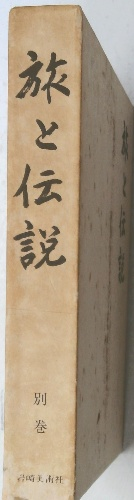 旅と伝説
別巻
岩崎美術社
旅と伝説